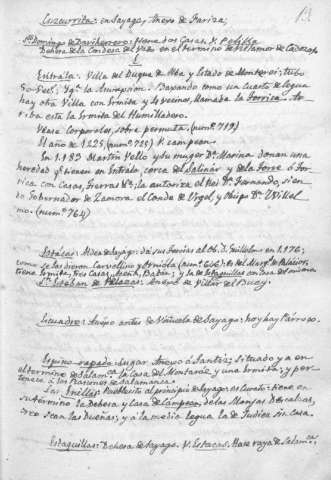 Escuredo: en Sayago, Anexo de Fariza;
Sto. Domingo de Daviherrero: tiene dos Casas, de Pelilla
Dehesa de la Condesa del Vado en el termino de Villamor de Cadozos
E
Entrala: Villa del Duque de Alba y Estado de Monterei; tubo
Igª la Asumpcion. Baxando como un cuarto de legua
hay otra Villa con Ermita y vecinos, llamada la Torrica. Ar-
riba está la Ermita del Humilladero.
Vease Corporales, sobre permuta (num.º 719)
El año de 1225 (num.º 725) R. Campeon.
En 1183 Martin Vello y su muger Dª Marina donan una
heredad q.e tienen en Entrala, cerca del Salinár y de la Torre ó Tor-
rica con Casas, tierras &c; la autoriza el Rei D. Fernando, sien-
do Gobernador de Zamora el Conde de Urgel, y Obispo D. Willel-
mo. (num.º 764)
Estacas: Aldea de Sayago: dá sus fueros al Ob. D. Guillelmo en 1176;
como se las dieron (num.º 616) Es del Marq.s de Palacios,
tiene Ermita, tres Casas, Dabán; y la de Estaquillas con Casa del mismo
Sn. Esteban de Palazas: Anexo de Villar del Buey.
Escuadro: Anexo antes de Viñuela de Sayago: hoy hay Párroco.
Espino rapado: Lugar Anexo á Santiz; situado ya en
el termino de Salam.ca la Casa del Montaraz y una ermita; y per-
tenece á los Racioneros de Salamanca.
Las Enillas: Pueblecito al principio de Sayago: es Curato: tiene en
su termino la Dehesa y Casa de Campean, de las Monjas Descalzas,
creo sean las Dueñas; y á la media legua la de Judiez sin Casa.
Estaquillas: Dehesa de Sayago. V. Estacas. Hace raya de Salam.ca